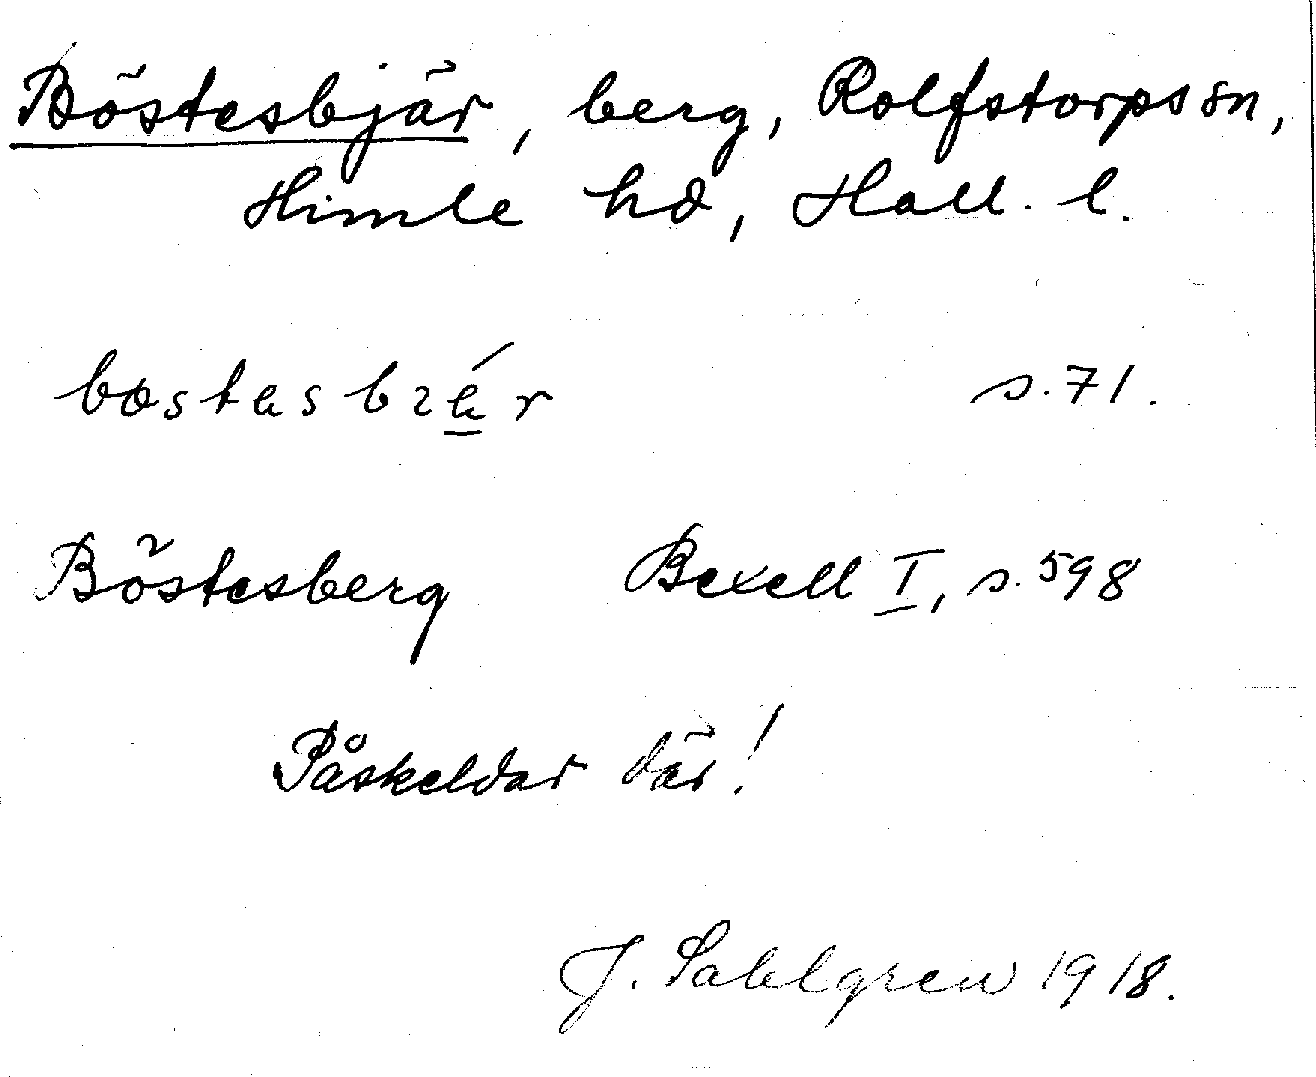 Böstesbjär, berg, Rolfstorps sn,
Himle hd, Hall. l.
s.71.
Böstesberg Bexell I, s.598
Påskeldar där!
J. Sahlgren 1918.